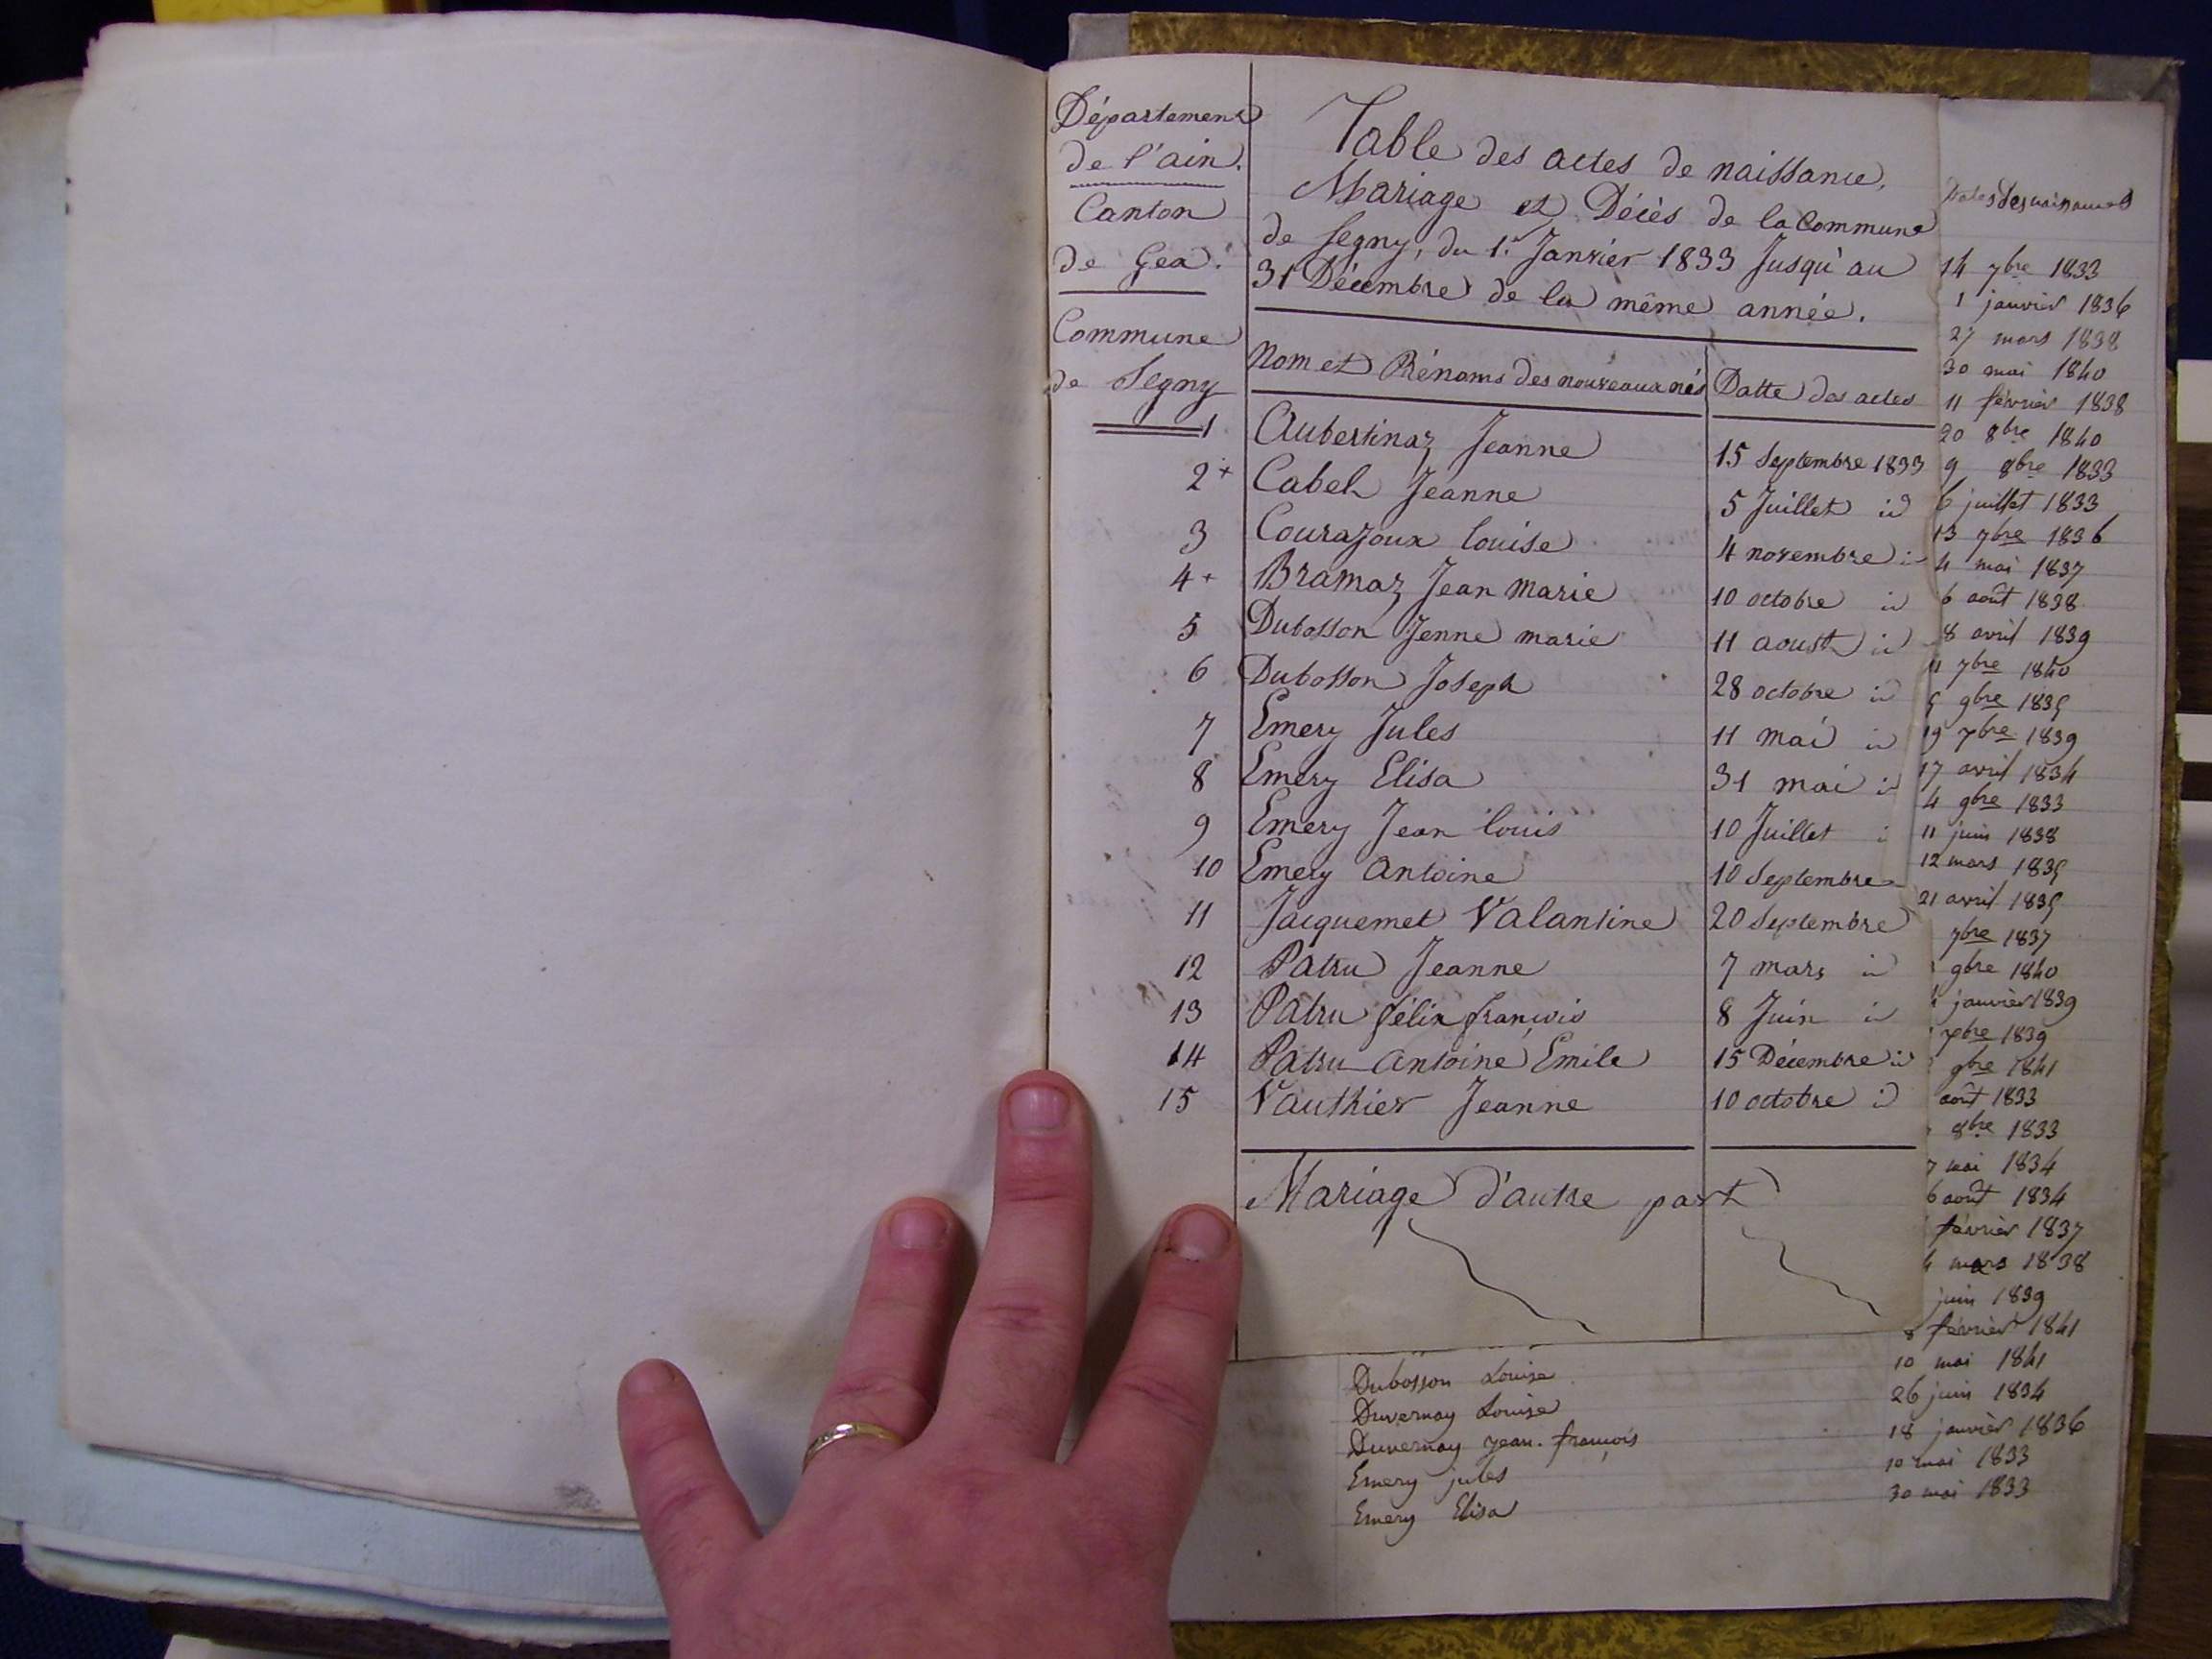 Département
de l'ain.
Canton
de Gex.
Commune
de Segny
Table des actes de naissance,
Mariage et Décès de la Commune
de Segny, du 1.r Janvier 1833 Jusqu'au
31 Décembre de la même année.
Nom et Prénoms des nouveaux nés Datte des actes
1 Aubertinaz Jeanne 15 Septembre 1833
2+ Cabel Jeanne 5 Juillet id
3 Courajoux louise 4 novembre id
4+ Bramaz Jean marie 10 octobre id
5 Dubosson Jenne marie 11 aoust id
6 Dubosson Joseph 28 octobre id
7 Emery Jules 11 mai id
8 Emery Elisa 31 mai id
9 Emery Jean louis 10 Juillet
10 Emery Antoine 10 Septembre
11 Jacquemet Valantine 20 Septembre
12 Patru Jeanne 7 mars id
13 Patru félix françois 8 Juin id
14 Patru Antoine Emile 15 Décembre id
15 Vauthier Jeanne 10 octobre id
Mariage d'autre part
Dates des naissances
14 7bre 1833
1 janvier 1836
27 mars 1838
30 mai 1840
11 février 1838
20 8bre 1840
9 8bre 1833
6 juillet 1833
13 7bre 1836
4 mai 1837
6 août 1838
8 avril 1839
11 7bre 1840
9bre 1835
19 7bre 1839
17 avril 1834
4 9bre 1833
11 juin 1838
12 mars 1835
21 avril 1835
7bre 1837
9bre 1840
janvier 1839
7bre 1839
9bre 1841
août 1833
8bre 1833
7 mai 1834
6 août 1834
février 1837
4 mars 1838
juin 1839
8 février 1841
Dubosson Louise 10 mai 1841
Duvernay Louise 26 juin 1834
Duvernay jean. françois 18 janvier 1836
Emery jules 10 mai 1833
Emery Elisa 30 mai 1833